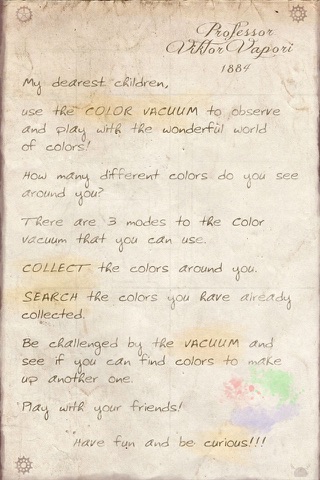 Professor
Viktor Vapori
1884
My dearest children,
use the COLOR VACUUM to observe
and play with the wonderful world
of colors!
How many different colors do you see
around you?
There are 3 modes to the Color
vacuum that you can use.
COLLECT the colors around you.
SEARCH the colors you have already
collected.
Be challenged by the VACUUM and
see if you can find colors to make
up another one.
Play with your friends!
Have fun and be curious!!!